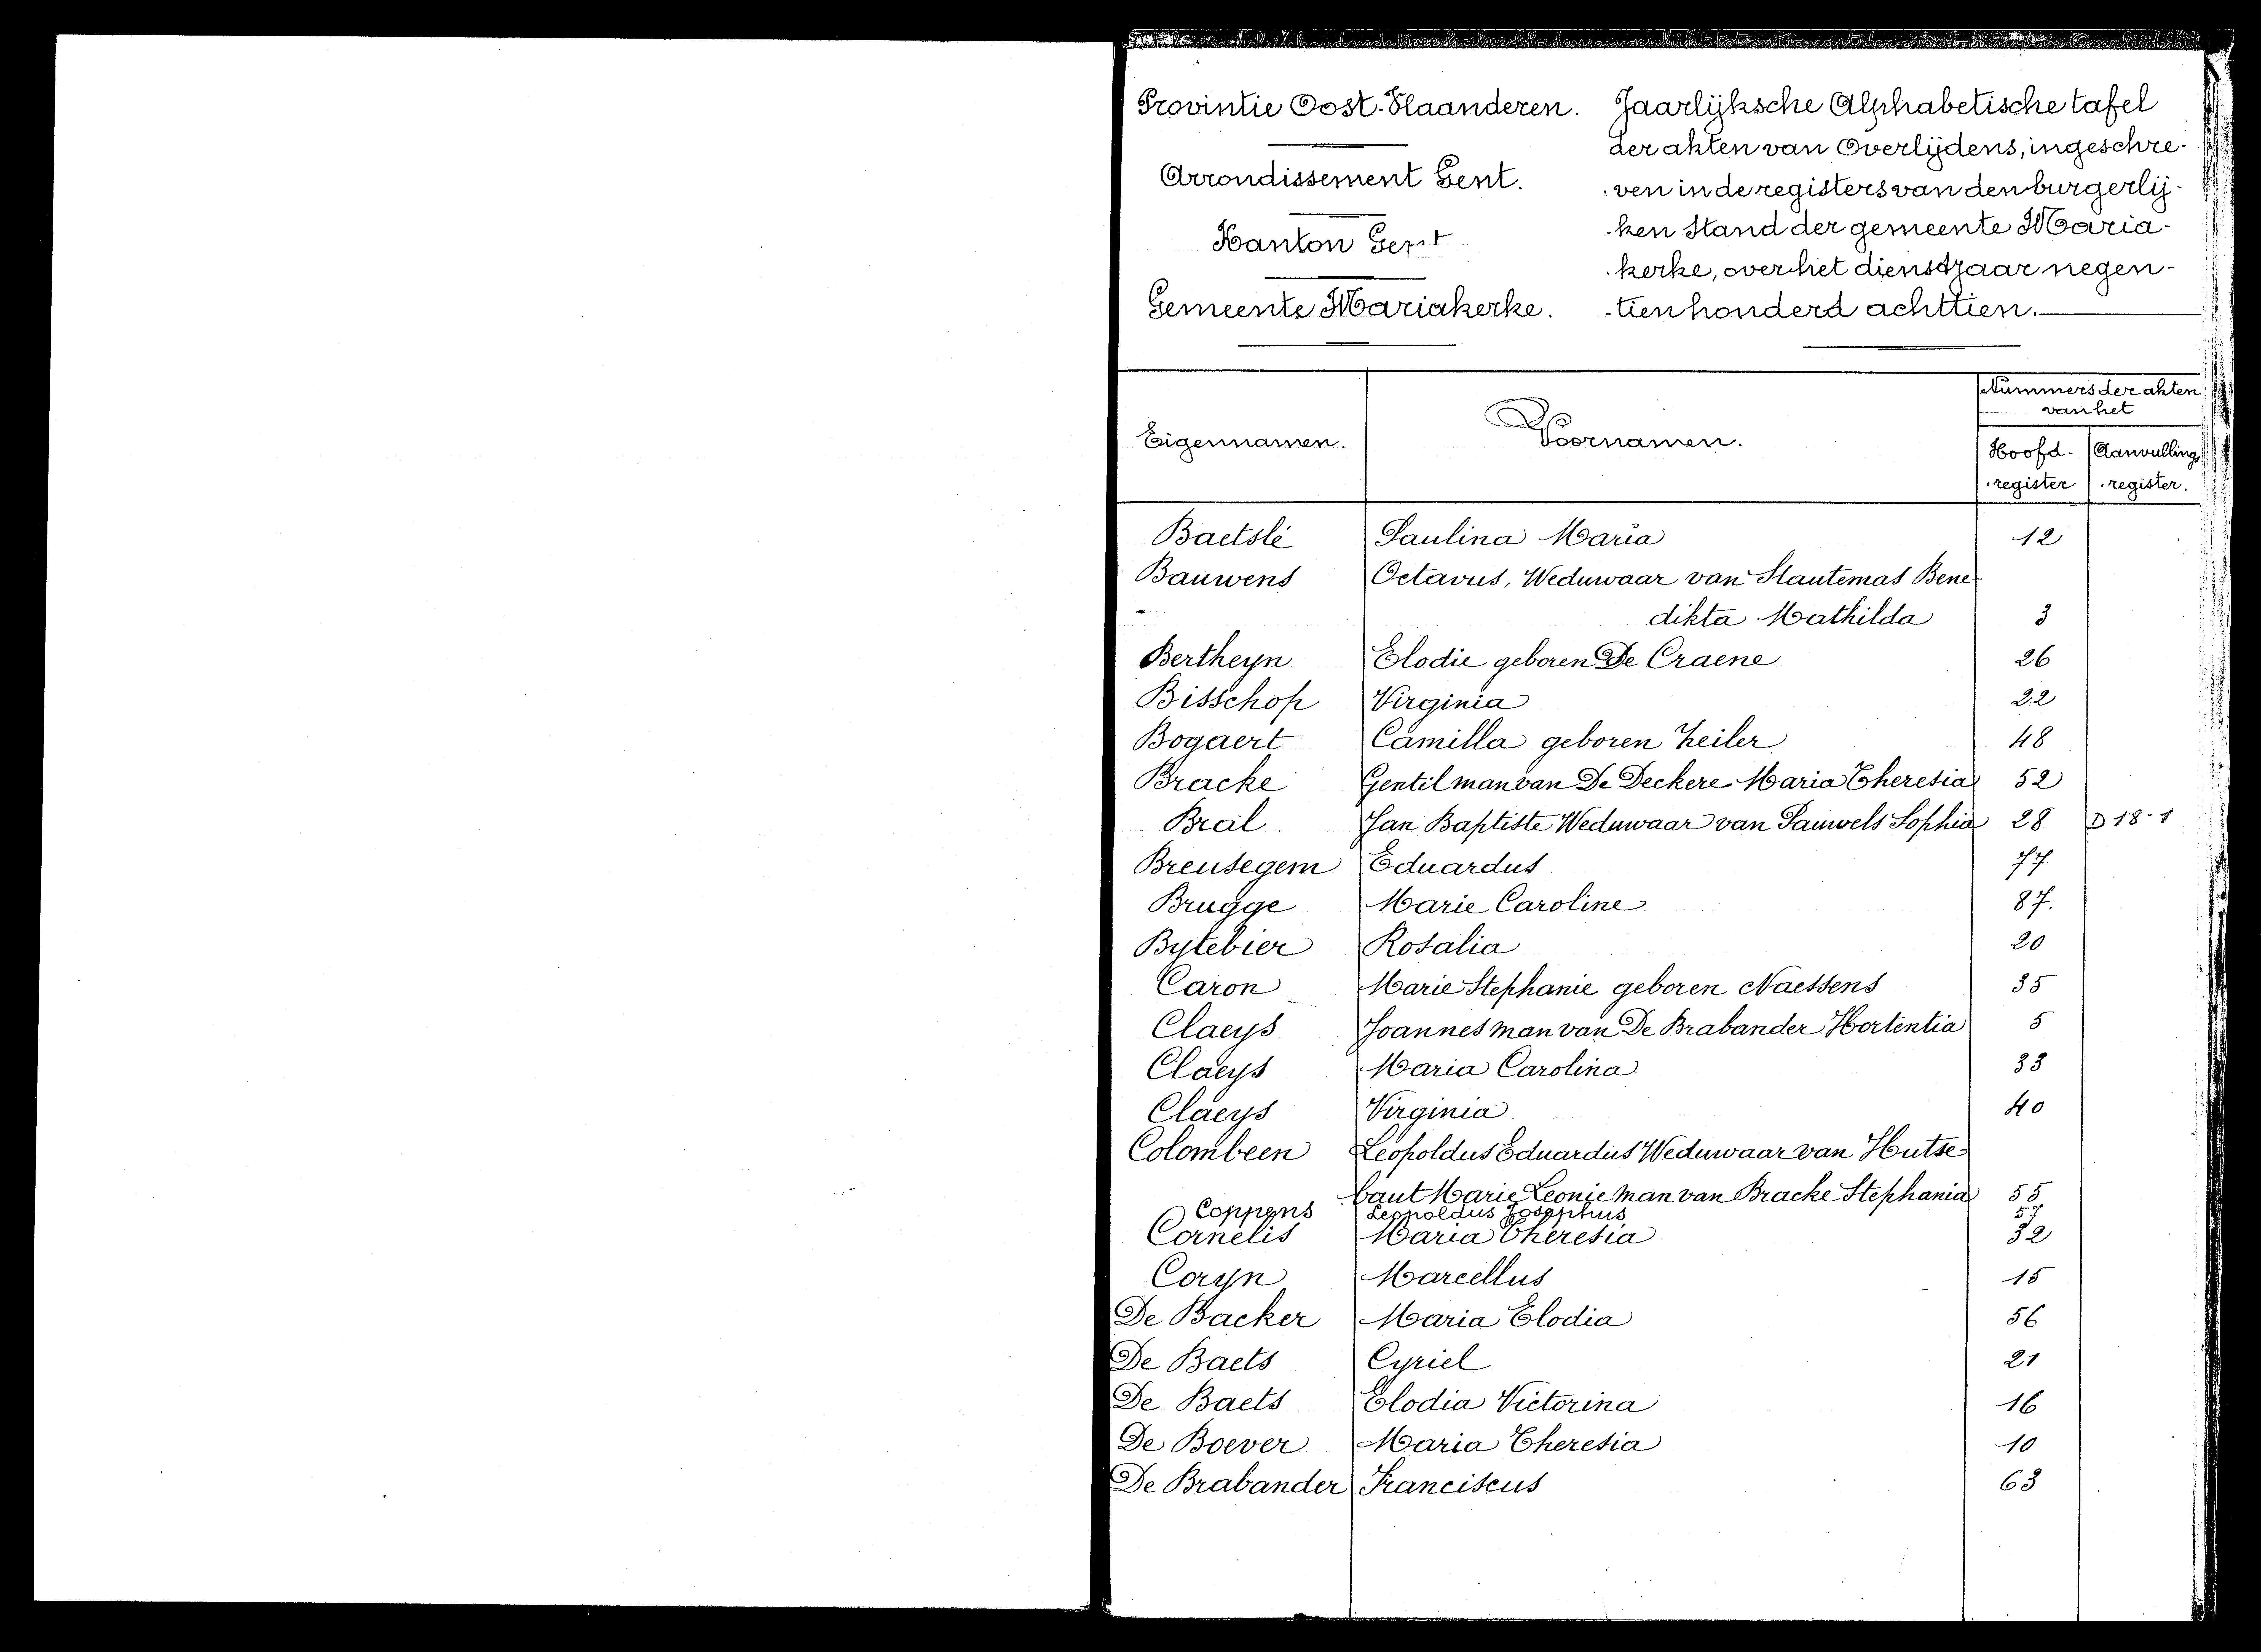 Provintie Oost-Vlaanderen.
Arrondissement Gent.
Kanton Gent
Gemeente Mariakerke.
Jaarlijksche Alphabetische tafel
der akten van Overlijdens, ingeschre-
-ven in de registers van den burgerlij-
-ken Stand der gemeente Maria-
-kerke, over het dienstjaar negen-
-tienhonderd achttien.
Eigennamen. Voornamen. Nummers der akten
van het
Hoofd- Aanvullings
-register -register.
Baetslé Paulina Maria 12
Bauwens Octavus, Weduwaar van Slautemas Bene-
dikta Mathilda 3
Bertheyn Elodie geboren De Craene 26
Bisschop Virginia 22
Bogaert Camilla geboren Zeiler 48
Bracke Gentil man van De Deckere Maria Theresia 52
Bral Jan Baptiste Weduwaar van Pauwels Sophia 28 D 18-1
Breusegem Eduardus 77
Brugge Marie Caroline 87.
Bytebier Rosalia 20
Caron Marie Stephanie geboren Naessens 35
Claeys Joannes man van De Brabander Hortentia 5
Claeys Maria Carolina 33
Claeys Virginia 40
Colombeen Leopoldus Eduardus Weduwaar van Hutse-
baut Marie Leonie man van Bracke Stephania 55
Coppens Leopoldus Josephus 57
Cornelis Maria Theresia 32
Coryn Marcellus 15
De Backer Maria Elodia 56
De Baets Cyriel 21
De Baets Elodia Victorina 16
De Boever Maria Theresia 10
De Brabander Franciscus 63